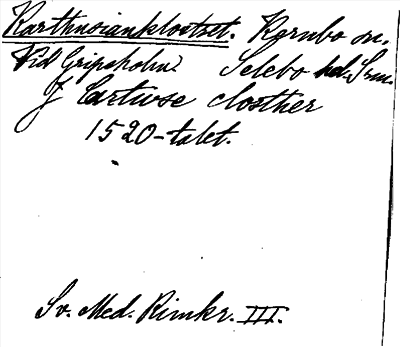 Karthusianklostret. Kärnbo sn.
Vid Gripsholm. Selebo hd. Srm.
J Cartuse closther
1520-talet.
Sv. Med. Rimkr. III.